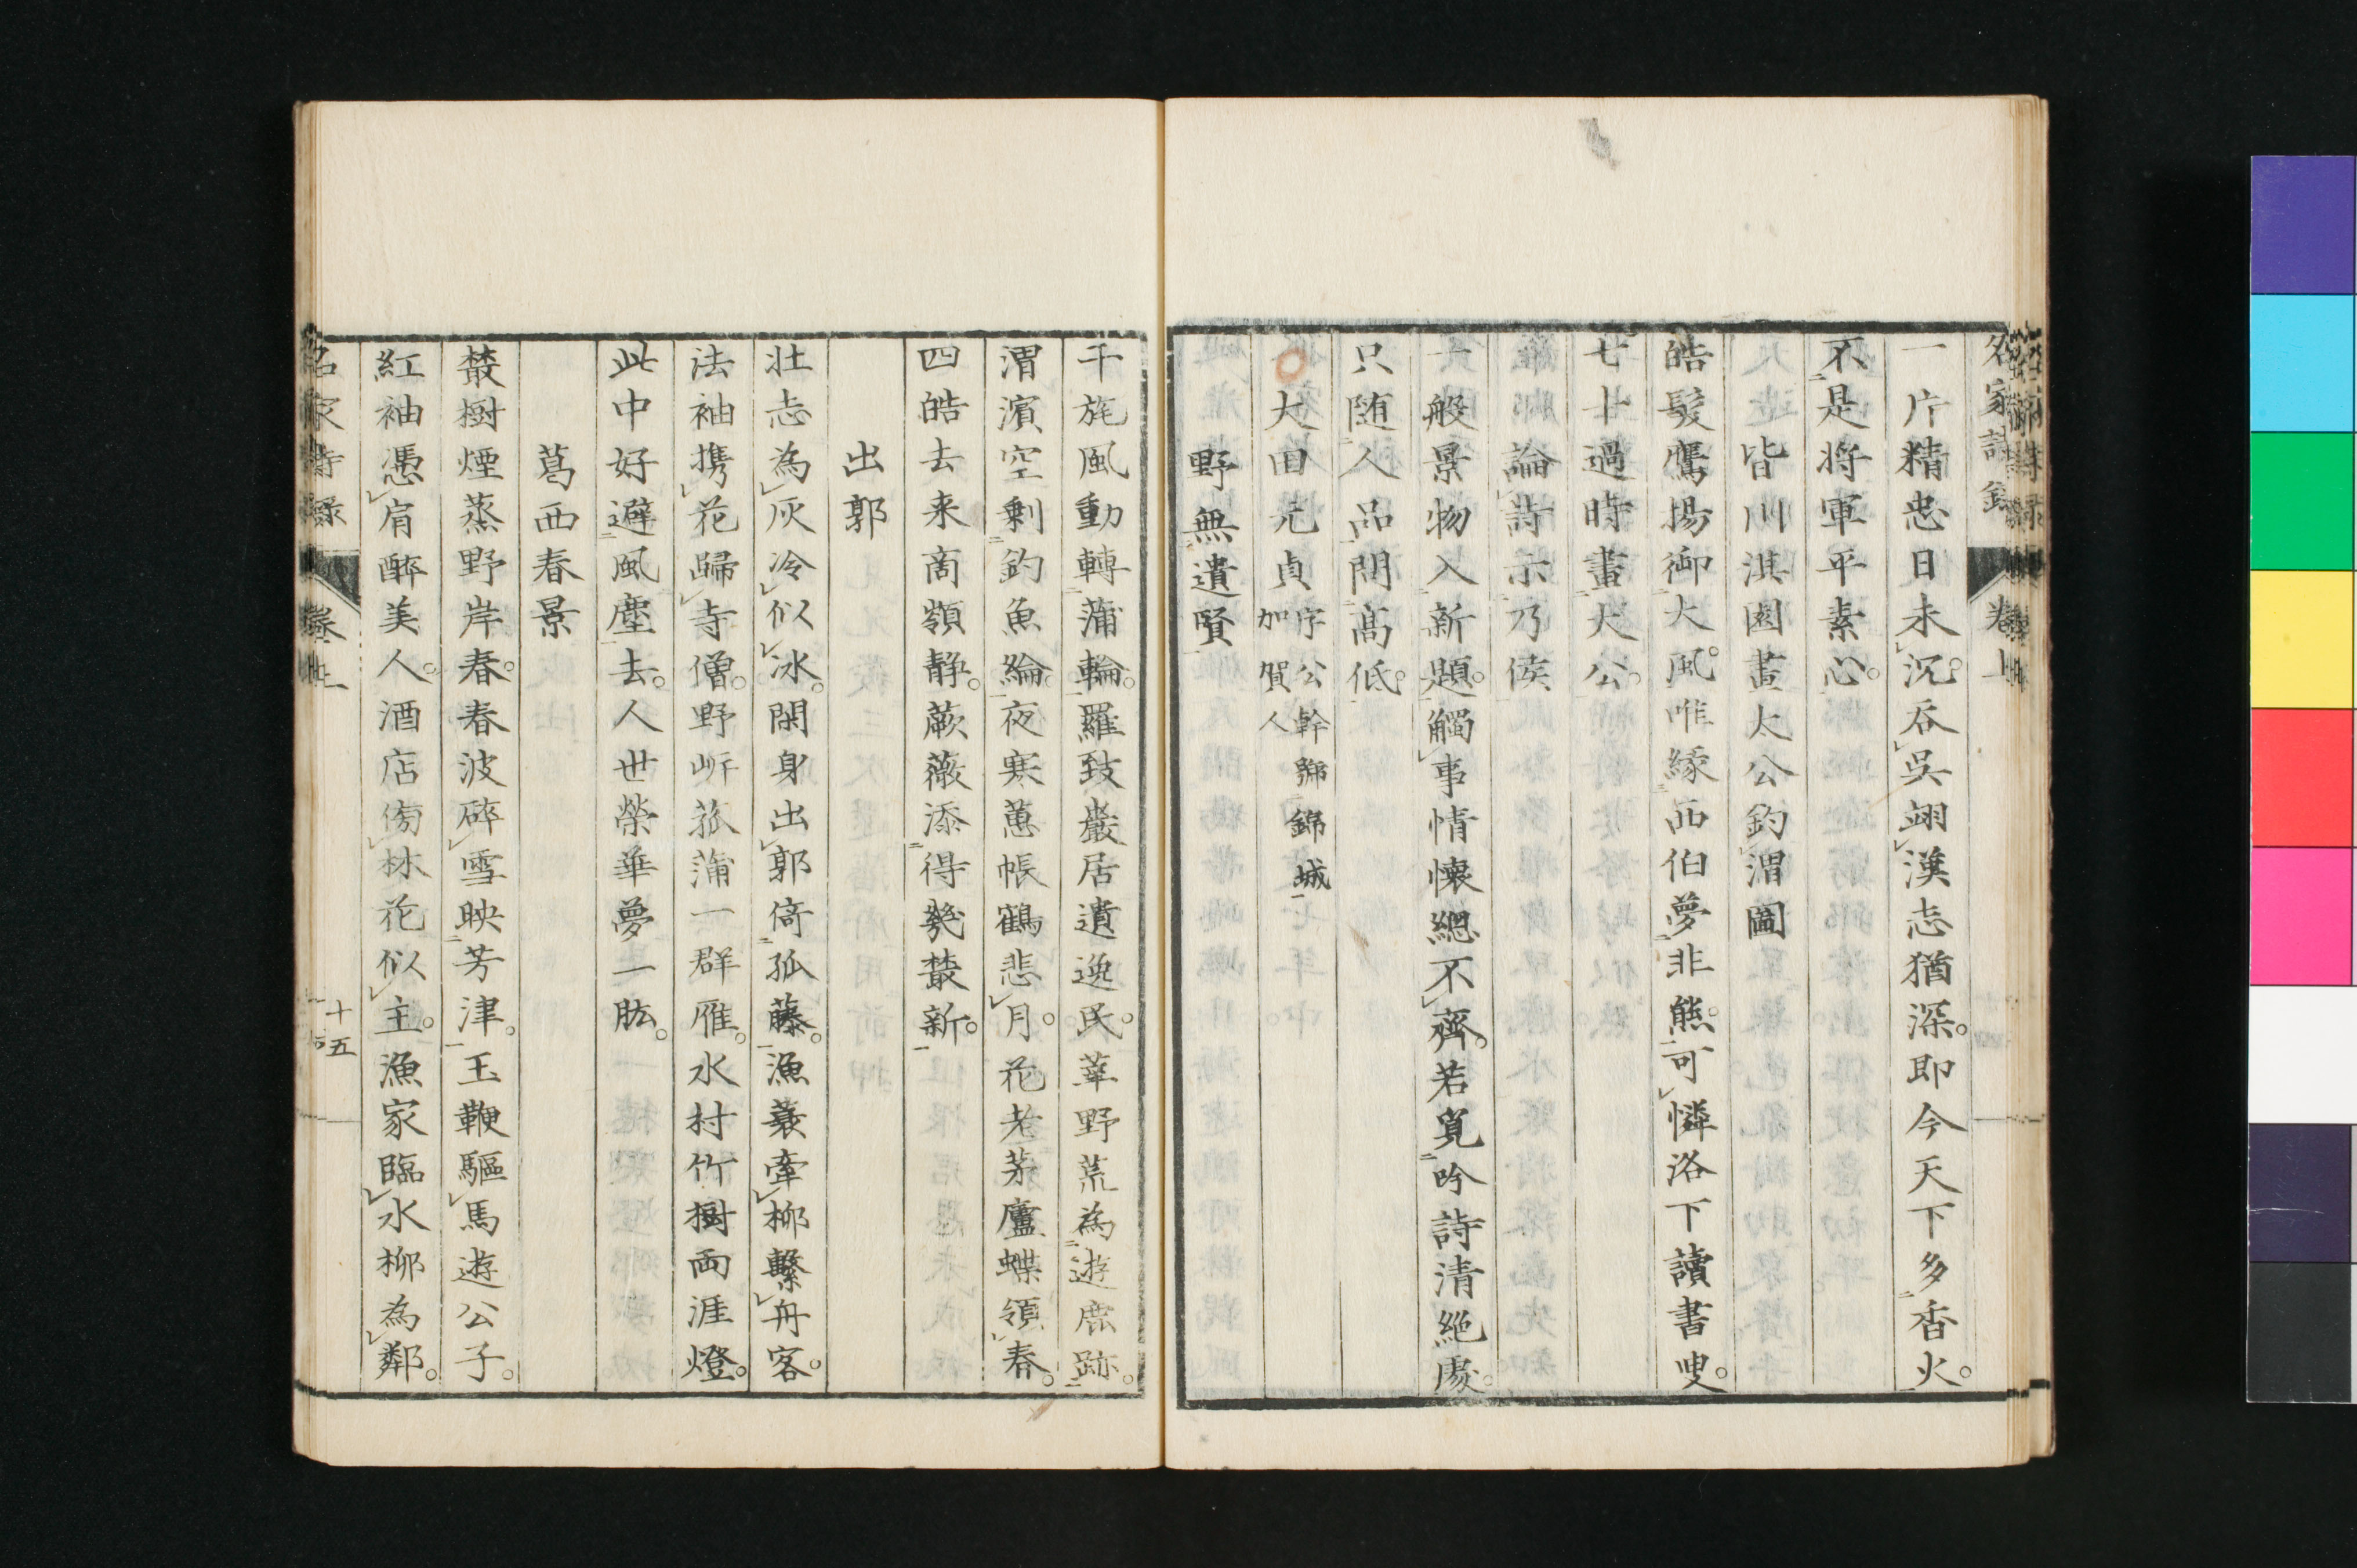 名家詩録 卷上
一片精忠日未沉。吞吳翊漢志猶深。即今天下多香火。
不是將軍平素心。
皆川淇園畫太公釣渭圖
皓髮鷹揚御大風。唯緣西伯夢非熊。可憐洛下讀書叟。
七十過時畫太公。
論詩示乃侯
一般景物入新題。觸事情懷總不齊。若覓吟詩清絕處。
只随人品問高低。
大田元貞 字公幹號錦城
加賀人
野無遺賢
干旄風動轉蒲輪。羅致巖居遺逸民。莘野荒為遊鹿跡。
渭濱空剩釣魚綸。夜寒蕙帳鶴悲月。花老茅廬蝶領春。
四皓去来商嶺靜。蕨薇添得幾叢新。
出郭
壮志為灰冷似冰。閑身出郭倚孤藤。漁蓑牽柳繫舟客。
法袖携花歸寺僧。野岍菰蒲一群雁。水村竹樹両涯燈。
此中好避風塵去。人世榮華夢一肱。
葛西春景
叢樹煙蒸野岸春。春波碎雪映芳津。玉鞭驅馬遊公子。
紅袖憑肩醉美人。酒店傍林花似主。漁家臨水柳為鄰。
名家詩録 卷上 十五